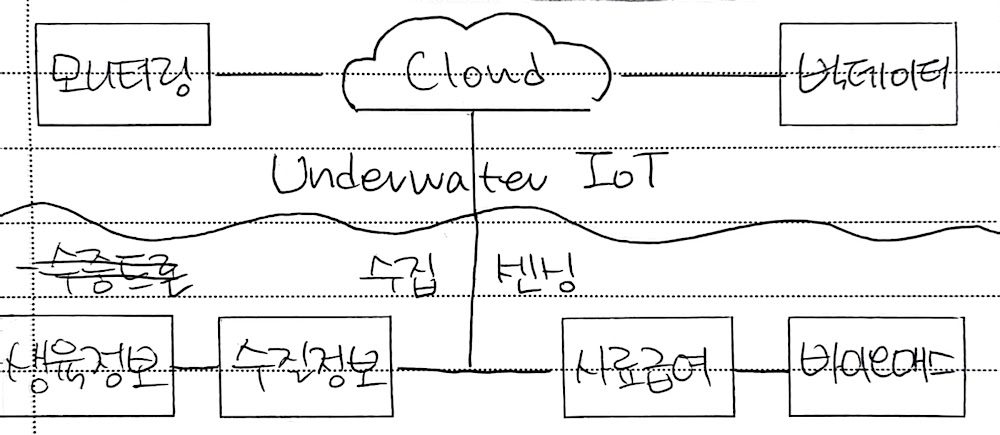 모니터링 Cloud 빅데이터
Underwater IoT
수중드론 수집 센싱
생육정보 수질정보 사료급여 바이오매스